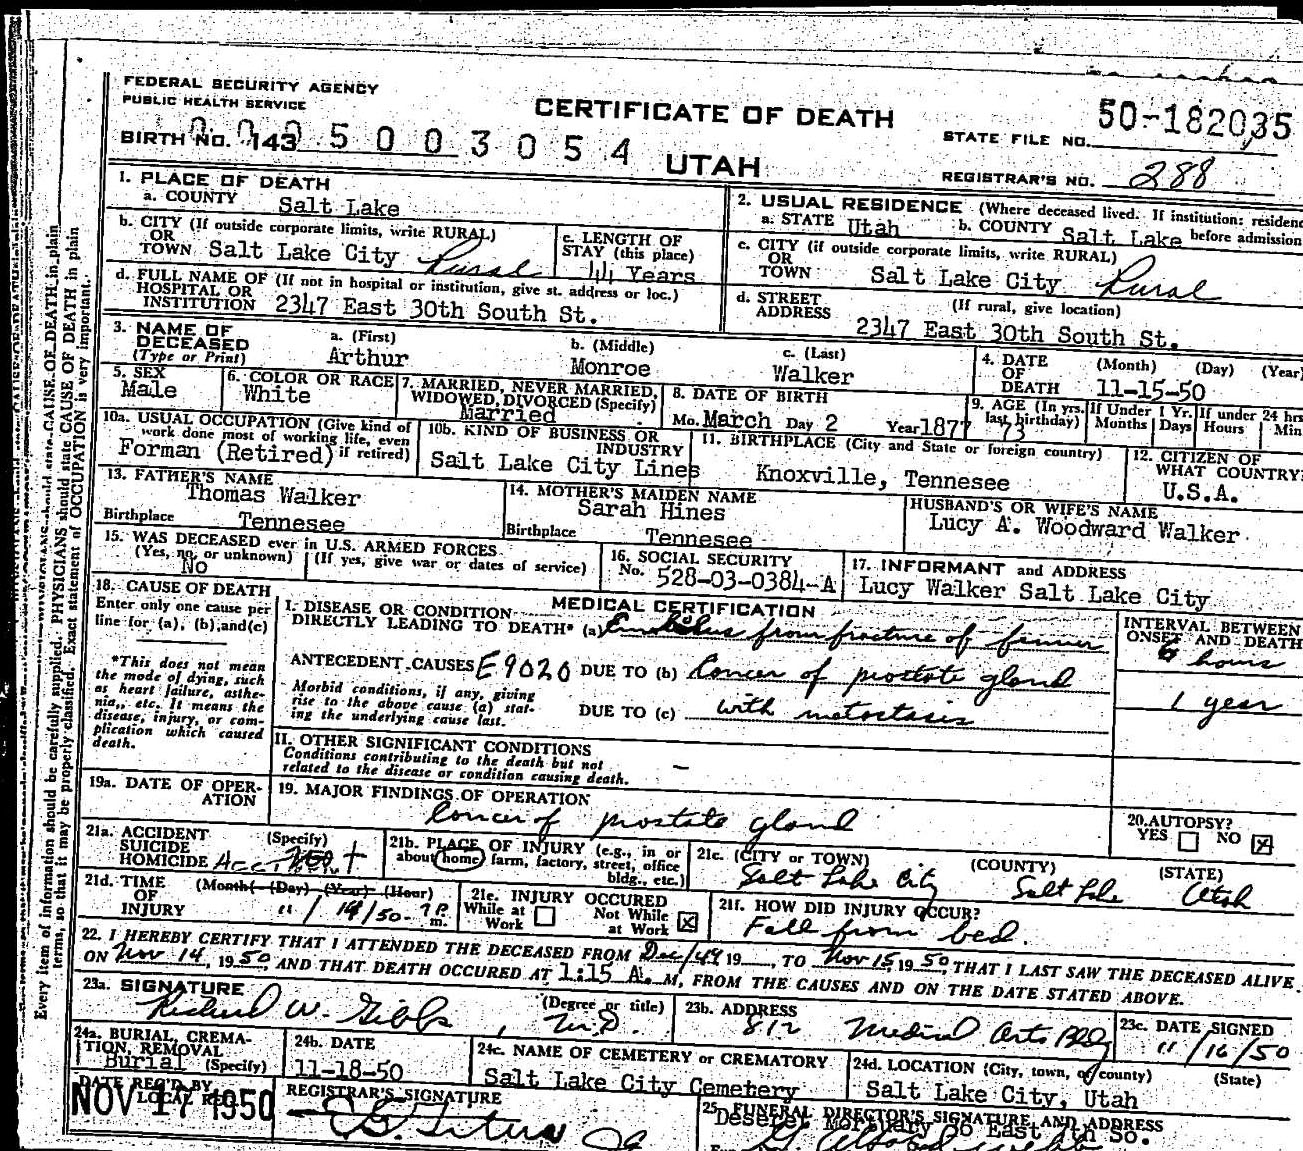 FEDERAL SECURITY AGENCY
PUBLIC HEALTH SERVICE
CERTIFICATE OF DEATH
UTAH
BIRTH NO. 143
0005003054
STATE FILE NO. 50-182035
REGISTRAR'S NO. 288
1. PLACE OF DEATH
a. COUNTY Salt Lake
b. CITY (If outside corporate limits, write RURAL)
OR
TOWN Salt Lake City Rural
c. LENGTH OF
STAY (this place)
44 Years
d. FULL NAME OF (If not in hospital or institution, give st. address or loc.)
HOSPITAL OR
INSTITUTION 2347 East 30th South St.
2. USUAL RESIDENCE (Where deceased lived. If institution: residence
a. STATE Utah b. COUNTY Salt Lake before admission
c. CITY (if outside corporate limits, write RURAL)
OR
TOWN Salt Lake City Rural
d. STREET (If rural, give location)
ADDRESS
2347 East 30th South St.
3. NAME OF
DECEASED
(Type or Print)
a. (First)
Arthur
b. (Middle)
Monroe
c. (Last)
Walker
4. DATE (Month) (Day) (Year)
OF
DEATH 11-15-50
5. SEX
Male
6. COLOR OR RACE
White
7. MARRIED, NEVER MARRIED,
WIDOWED, DIVORCED (Specify)
Married
8. DATE OF BIRTH
Mo. March Day 2 Year 1877
9. AGE (In yrs.
last birthday)
73
If Under 1 Yr.
Months Days
If under 24 hrs
Hours Min
10a. USUAL OCCUPATION (Give kind of
work done most of working life, even
if retired)
Forman (Retired)
10b. KIND OF BUSINESS OR
INDUSTRY
Salt Lake City Lines
11. BIRTHPLACE (City and State or foreign country)
Knoxville, Tennesee
12. CITIZEN OF
WHAT COUNTRY?
U.S.A.
13. FATHER'S NAME
Thomas Walker
Birthplace Tennesee
14. MOTHER'S MAIDEN NAME
Sarah Hines
Birthplace Tennesee
HUSBAND'S OR WIFE'S NAME
Lucy A. Woodward Walker
15. WAS DECEASED ever in U.S. ARMED FORCES
(Yes, no, or unknown) (If yes, give war or dates of service)
No
16. SOCIAL SECURITY
No. 528-03-0384-A
17. INFORMANT and ADDRESS
Lucy Walker Salt Lake City
18. CAUSE OF DEATH
Enter only one cause per
line for (a), (b), and (c)
*This does not mean
the mode of dying, such
as heart failure, asthe-
nia, etc. It means the
disease, injury, or com-
plication which caused
death.
MEDICAL CERTIFICATION
I. DISEASE OR CONDITION
DIRECTLY LEADING TO DEATH* (a) Embolus from fracture of femur
ANTECEDENT CAUSES E9020 DUE TO (b) Cancer of prostate gland
Morbid conditions, if any, giving
rise to the above cause (a) stat-
ing the underlying cause last.
DUE TO (c) with metostasis
INTERVAL BETWEEN
ONSET AND DEATH
6 hours
1 year
II. OTHER SIGNIFICANT CONDITIONS
Conditions contributing to the death but not
related to the disease or condition causing death.
–
19a. DATE OF OPER-
ATION
19. MAJOR FINDINGS OF OPERATION
Cancer of prostate gland
20. AUTOPSY?
YES NO X
21a. ACCIDENT (Specify)
SUICIDE
HOMICIDE
21b. PLACE OF INJURY (e.g., in or
about home, farm, factory, street, office
bldg., etc.)
21c. (CITY or TOWN) (COUNTY) (STATE)
Salt Lake City Salt Lake Utah
21d. TIME (Month) (Day) (Year) (Hour)
OF
INJURY 11/14/50 7 P. m.
21e. INJURY OCCURED
While at Work
Not While at Work X
21f. HOW DID INJURY OCCUR?
Fall from bed.
22. I HEREBY CERTIFY THAT I ATTENDED THE DECEASED FROM Dec/49 19__, TO Nov 15, 1950, THAT I LAST SAW THE DECEASED ALIVE
ON Nov 14, 1950, AND THAT DEATH OCCURED AT 1:15 A. M, FROM THE CAUSES AND ON THE DATE STATED ABOVE.
23a. SIGNATURE (Degree or title)
Richard W. Gibbs, M.D.
23b. ADDRESS
812 Medical Arts Bldg
23c. DATE SIGNED
11/16/50
24a. BURIAL, CREMA-
TION, REMOVAL
Burial (Specify)
24b. DATE
11-18-50
24c. NAME OF CEMETERY or CREMATORY
Salt Lake City Cemetery
24d. LOCATION (City, town, or county) (State)
Salt Lake City, Utah
DATE REC'D BY
LOCAL REG.
NOV 17 1950
REGISTRAR'S SIGNATURE
25. FUNERAL DIRECTOR'S SIGNATURE AND ADDRESS
Deseret Mortuary 36 East 7th So.
Every item of information should be carefully supplied. PHYSICIANS should state CAUSE OF DEATH in plain
terms, so that it may be properly classified. Exact statement of OCCUPATION is very important.